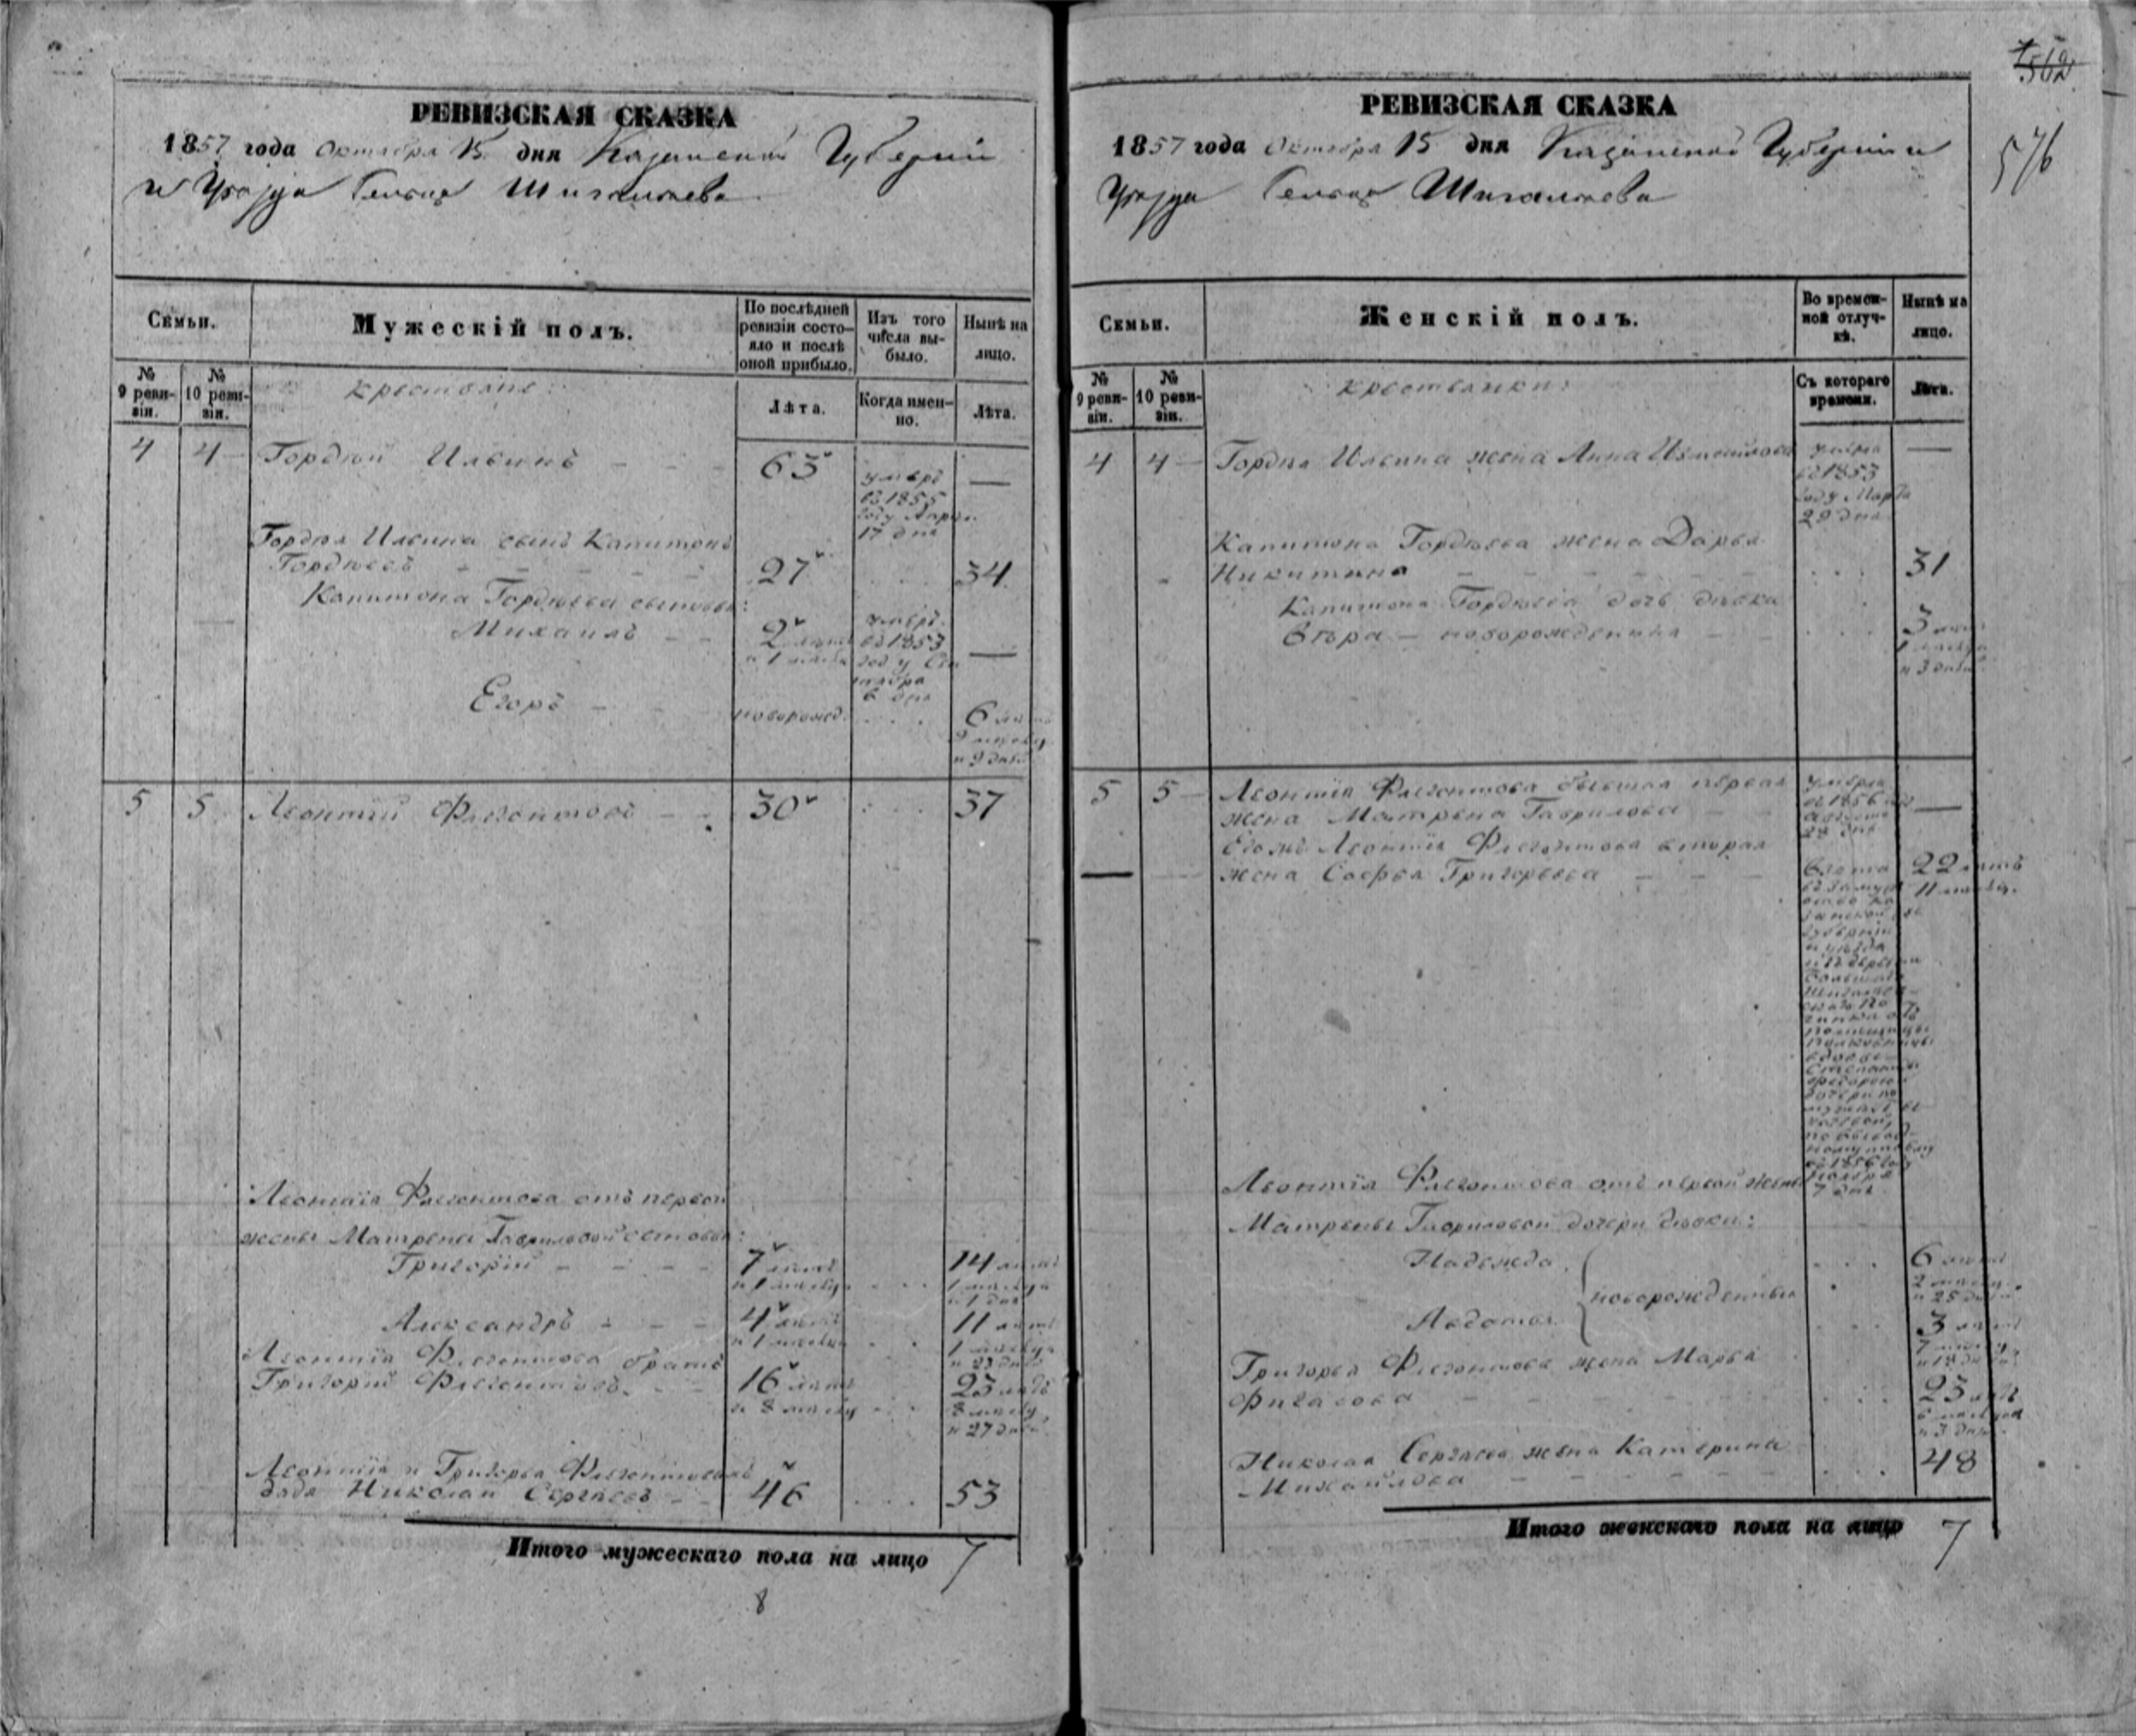 РЕВИЗСКАЯ СКАЗКА
1857 года Октября 15 дня Казанской Губернии
и Уѣзда Сельца Шигалѣева
Семьи.
Мужескій полъ.
По послѣдней ревизіи состояло и послѣ оной прибыло.
Изъ того числа выбыло.
Нынѣ на лицо.
№ 9 ревизіи.
№ 10 ревизіи.
крестьяне:
Лѣта.
Когда именно.
Лѣта.
4 4 Гордѣй Ильинъ 63 умеръ —
въ 1855
году Апрѣл.
17 дня
Гордѣя Ильина сынъ Капитонъ
Гордѣевъ 27 34
Капитона Гордѣева сыновья:
Михаилъ 2 лѣтъ умеръ —
и 1 въ 1853
году
6 дня
Егоръ новорожд. 6 лѣтъ
9 мѣсяц.
и 9 дней
5 5 Леонтій Флегонтовъ 30 37
Леонтія Флегонтова отъ первой
жены Матрены Гавриловой сыновья:
Григорій 7 лѣтъ 14 лѣтъ
и 1 мѣсяца 1 мѣсяца
и 1 дня
Александръ 4 лѣтъ 11 лѣтъ
и 1 мѣсяца 1 мѣсяца
и 23 дней
Леонтія Флегонтова братъ
Григорій Флегонтовъ 16 лѣтъ 23 лѣтъ
и 8 мѣсяц 8 мѣсяц
и 27 дней
Леонтія и Григорья Флегонтовыхъ
дядя Николай Сергѣевъ 46 53
Итого мужескаго пола на лицо 7
8
562
576
РЕВИЗСКАЯ СКАЗКА
1857 года Октября 15 дня Казанской Губерніи и
Уѣзда Сельца Шигалѣева
Семьи.
Женскій полъ.
Во временной отлучкѣ.
Нынѣ на лицо.
№ 9 ревизіи.
№ 10 ревизіи.
крестьянки:
Съ котораго времени.
Лѣта.
4 4 Гордѣя Ильина жена Анна Измайлова умерла —
въ 1853
году Марта
29 дня
Капитона Гордѣева жена Дарья
Никитина 31
Капитона Гордѣева дочь дѣвка
Вѣра — новорожденная 3 лѣтъ
1 мѣсяца
и 3 дней
5 5 Леонтія Флегонтова бывшая первая умерла
жена Матрена Гаврилова въ 1856 —
Августа
28 дня
Его же Леонтія Флегонтова вторая
— жена Софья Григорьева взята 22 лѣтъ
11 мѣсяц.
губерніи
и уѣзда
помѣщицы
въ 1856 году
Ноября
7 дня
Леонтія Флегонтова отъ первой жены
Матрены Гавриловой дочери дѣвки:
Надежда 6 лѣтъ
2 мѣсяц.
и 25 дней
новорожденныя
Авдотья 3 лѣтъ
7 мѣсяц.
и 18 дней
Григорья Флегонтова жена Марья
Фирсова 23 лѣтъ
6 мѣсяцовъ
и 3 дней
Николая Сергѣева жена Катерина
Михайлова 48
Итого женскаго пола на лицо 7